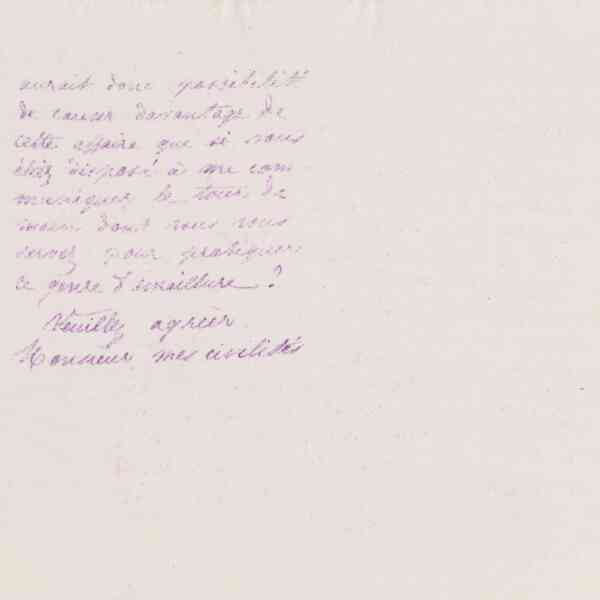 aurait donc possibilité
de causer davantage de
cette affaire que si vous
étiez disposé à me com
muniquer le tour de
main dont vous vous
servez pour pratiquer
ce genre d'émaillure ?
Veuillez agréer
Monsieur, mes civilités